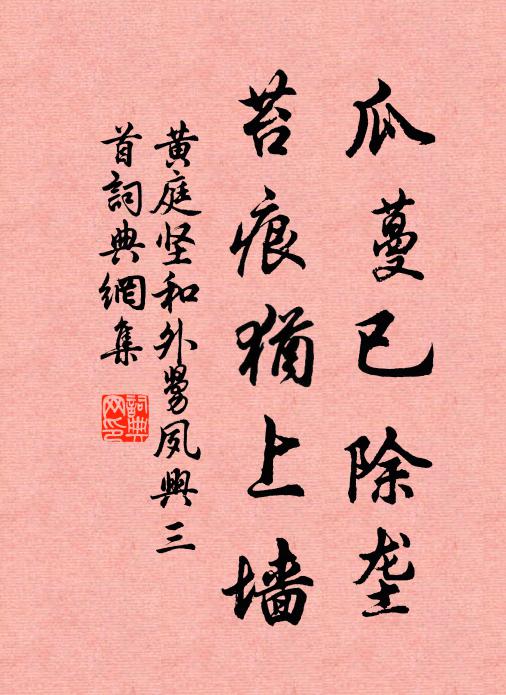 瓜蔓已除垄
苔痕犹上墙
黄庭坚和外舅夙興三
首詞典網集
詞典
网印